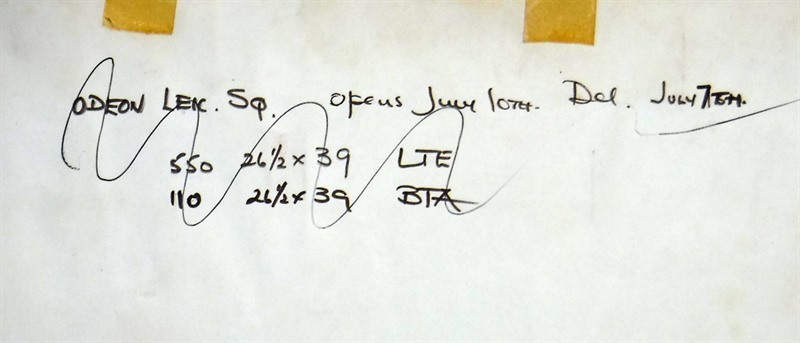 ODEON LEIC. SQ. Opens July 10TH. Del. JULY 7TH.
550 26½ x 39 LTE
110 26½ x 39 BTA